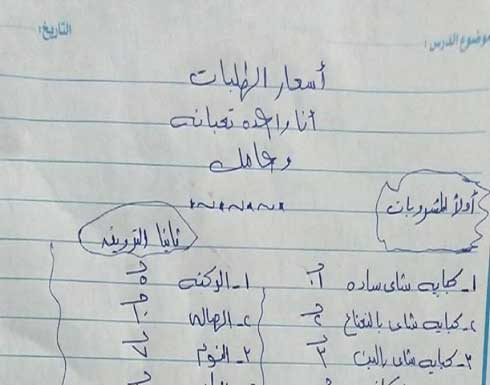 موضوع الدرس:
التاريخ:
أسعار الطلبات
أنا واحده تعبانه
وحامل
أولاً المشروبات
ثانيا الترويقه
١- كبايه شاى ساده ١ج
٢- كبايه شاى بالنعناع ٢ج
٣- كبايه شاى بالبن ٣ج
١- الركنه ٥ج
٢- الصاله ١٠ج
٣- النوم ٧ج